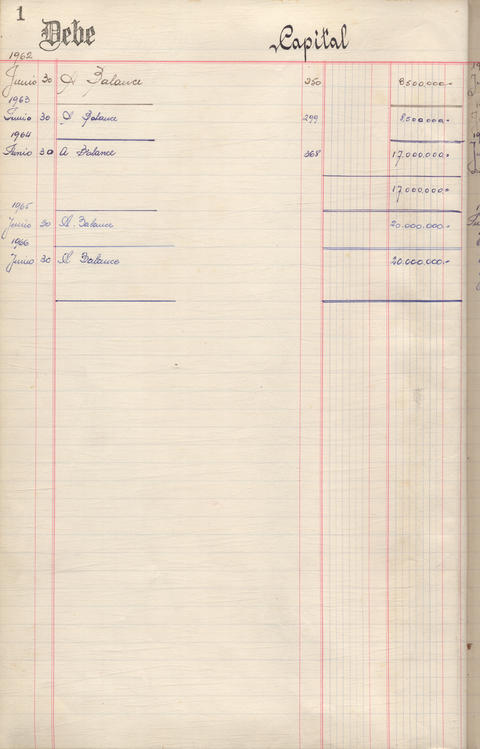 1
Debe Capital
1962
Junio 30 A Balance 250 8.500.000.-
1963
Junio 30 A Balance 299 8.500.000.-
1964
Junio 30 A Balance 368 17.000.000.-
17.000.000.-
1965
Junio 30 A Balance 20.000.000.-
1966
Junio 30 A Balance 20.000.000.-